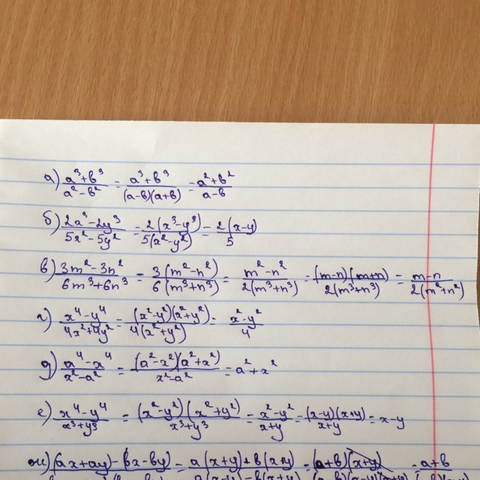 а) a³+b³/a²-b² = a³+b³/(a-b)(a+b) = a²+b²/a-b
б) 2a³-2y³/5x²-5y² = 2(x³-y³)/5(x²-y²) = 2(x-y)/5
в) 3m²-3n²/6m³+6n³ = 3(m²-n²)/6(m³+n³) = m²-n²/2(m³+n³) = (m-n)(m+n)/2(m³+n³) = m-n/2(m²+n²)
г) x⁴-y⁴/4x²+4y² = (x²-y²)(x²+y²)/4(x²+y²) = x²-y²/4
д) a⁴-x⁴/x²-a² = (a²-x²)(a²+x²)/x²-a² = a²+x²
е) x⁴-y⁴/x³+y³ = (x²-y²)(x²+y²)/x³+y³ = x²-y²/x+y = (x-y)(x+y)/x+y = x-y
ж) (ax+ay)-(bx-by) = a(x+y)+b(x+y) = (a+b)(x+y) = a+b